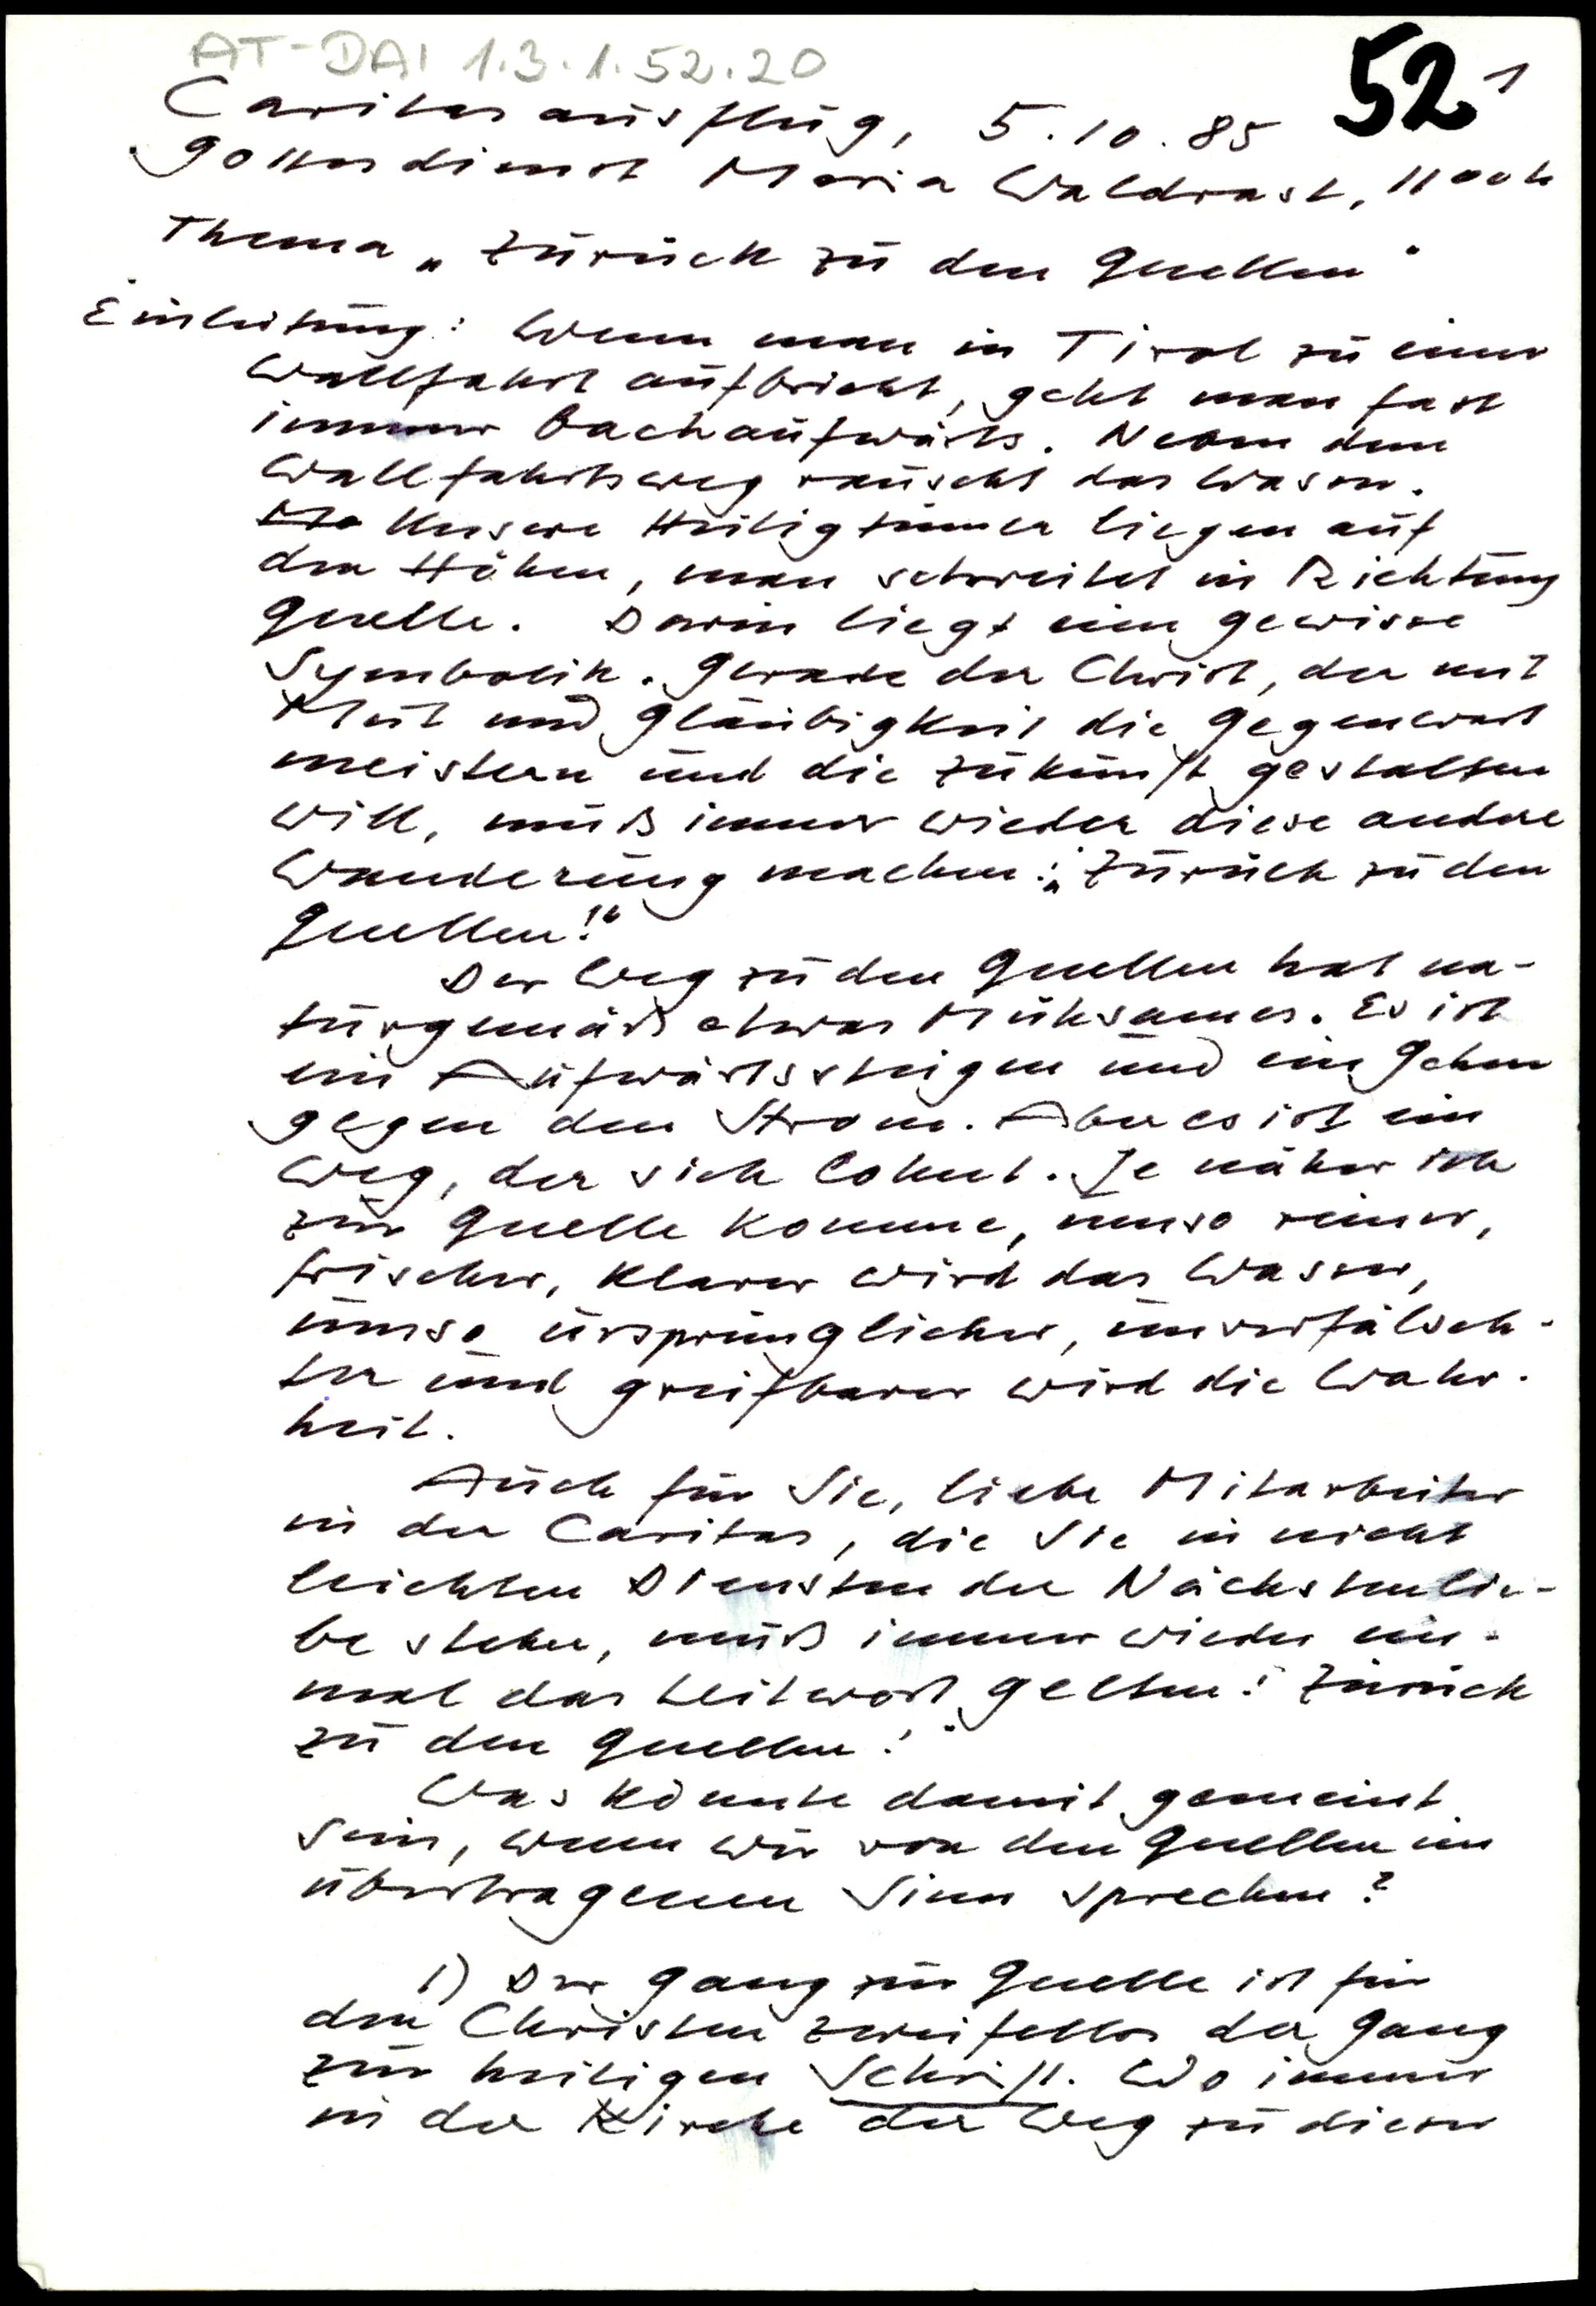 AT-DAI 1.3.1.52.20
52 1
Caritasausflug, 5.10.85
Gottesdienst Maria Waldrast, 11 00 h
Thema „Zurück zu den Quellen"
Einleitung: Wenn man in Tirol zu einer
Wallfahrt aufbricht, geht man fast
immer bachaufwärts. Neben dem
Wallfahrtsweg rauscht das Wasser.
Unsere Heiligtümer liegen auf
den Höhen, man schreitet in Richtung
Quelle. Darin liegt eine gewisse
Symbolik. Gerade der Christ, der mit
Mut und Gläubigkeit die Gegenwart
meistern und die Zukunft gestalten
will, muß immer wieder diese andere
Wanderung machen: „Zurück zu den
Quellen!"
Der Weg zu den Quellen hat na-
turgemäß etwas Mühsames. Es ist
ein Aufwärtssteigen und ein Gehen
gegen den Strom. Aber es ist ein
Weg, der sich lohnt. Je näher ich
zur Quelle komme, umso reiner,
frischer, klarer wird das Wasser,
umso ursprünglicher, unverfälsch-
ter und greifbarer wird die Wahr-
heit.
Auch für Sie, liebe Mitarbeiter
in der Caritas, die Sie in nicht
leichten Diensten der Nächstenlie-
be stehen, muß immer wieder ein-
mal das Leitwort gelten: Zurück
zu den Quellen!"
Was könnte damit gemeint
sein, wenn wir von den Quellen im
übertragenen Sinn sprechen?
1) Der Gang zur Quelle ist für
den Christen zweifellos der Gang
zur heiligen Schrift. Wo immer
in der Kirche der Weg zu dieser